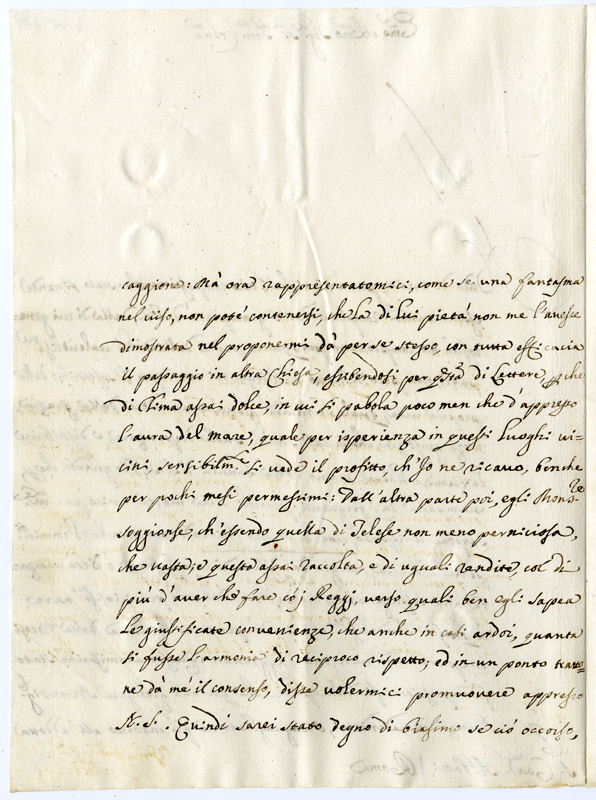 caggione: Mà ora rappresentatomici, come se una fantasma
nel viso, non poté contenersi, che la di lui pietà non me l'avesse
dimostrata nel proponermi dà per se stesso, con tutta efficacia
il passaggio in altra Chiesa, essibendosi per qsta di Lettere, che
di Clima assai dolce, in cui si pabola poco men che d'appresso
l'aura del mare, quale per isperienza in questi luoghi vi=
cini, sensibilmte si vede il profitto, ch'Io ne ricavo, benche
per pochi mesi permessimi: Dall'altra parte poi, egli Monsre
soggionse, ch'essendo quella di Telese non meno perniciosa,
che vasta; e questa assai raccolta, e di uguali rendite, col di
più d'aver che fare coj Reggj, verso quali ben egli sapea
le giustificate convenienze, che anche in casi ardoi, quanta
si fusse l'armonia di reciproco rispetto; ed in un ponto tratto=
ne dà mé il consenso, disse volermici promuovere appresso
N. S. Quindi sarei stato degno di biasimo se ciò occorso,